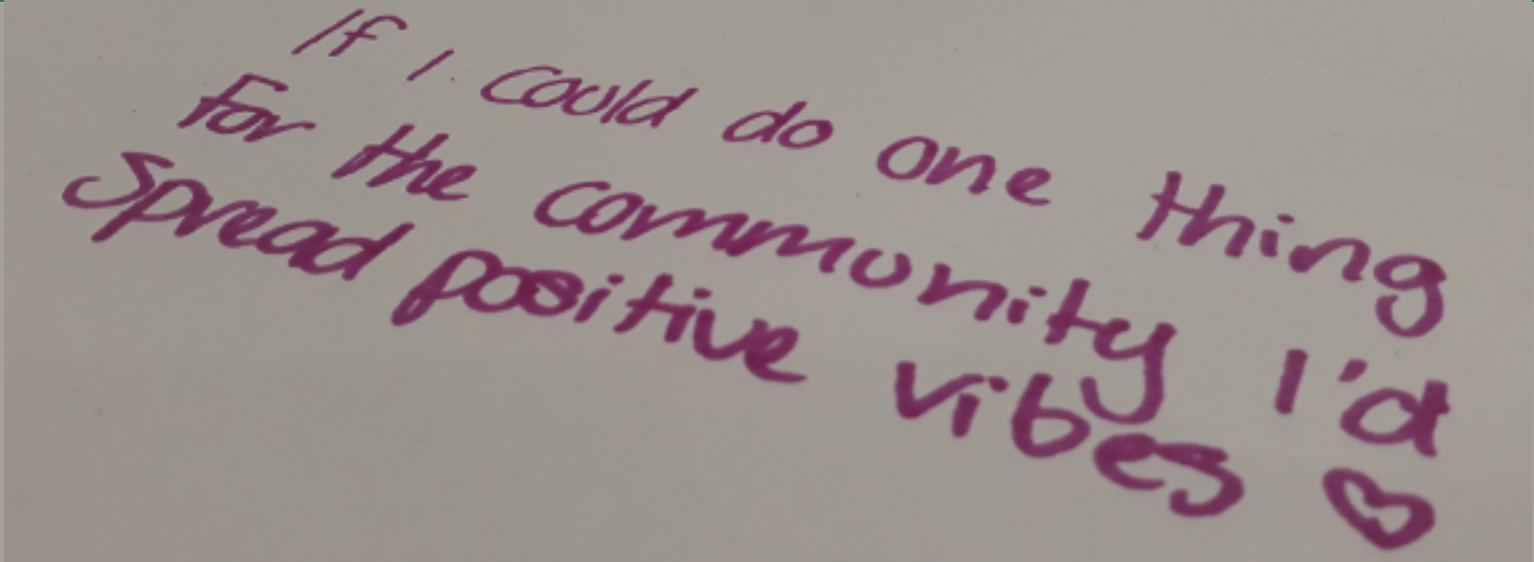 If I could do one thing
For the community I'd
Spread positive vibes ♡